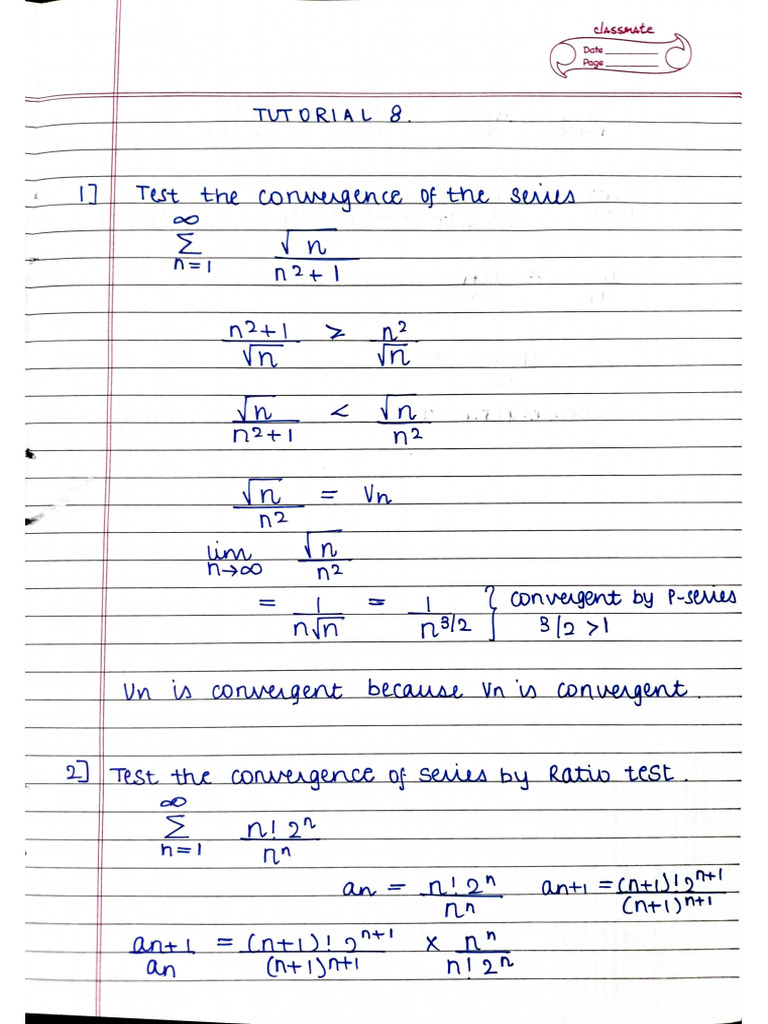 classmate
Date
Page
TUTORIAL 8.
1] Test the convergence of the series
∞
Σ √n
n=1 n²+1
n²+1 > n²
√n √n
√n < √n
n²+1 n²
√n = Vn
n²
lim √n
n→∞ n²
= 1 = 1 } convergent by P-series
n√n n^3/2 3/2 >1
Un is convergent because Vn is convergent.
2] Test the convergence of series by Ratio test.
∞
Σ n! 2ⁿ
n=1 nⁿ
an = n! 2ⁿ an+1 = (n+1)! 2ⁿ⁺¹
nⁿ (n+1)ⁿ⁺¹
an+1 = (n+1)! 2ⁿ⁺¹ × nⁿ
an (n+1)ⁿ⁺¹ n! 2ⁿ